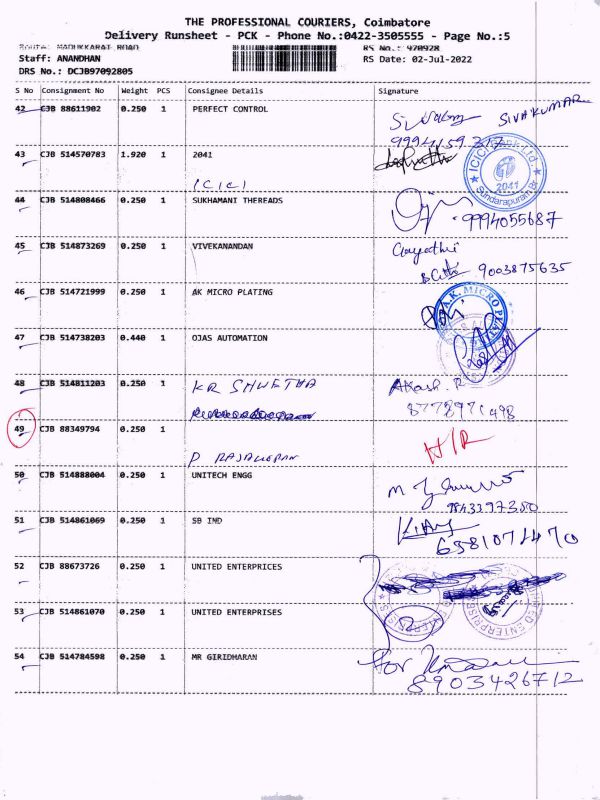 THE PROFESSIONAL COURIERS, Coimbatore
Delivery Runsheet - PCK - Phone No.:0422-3505555 - Page No.:5
Route: MADUKKARAI ROAD RS No.: 470928
Staff: ANANDHAN RS Date: 02-Jul-2022
DRS No.: DCJB97092805
S No Consignment No Weight PCS Consignee Details Signature
42 CJB 88611902 0.250 1 PERFECT CONTROL SIVAKUMAR
43 CJB 514570783 1.920 1 2041
ICICI Bank Ltd. 2041 Sundarapuram Br
ICICI
44 CJB 514808466 0.250 1 SUKHAMANI THEREADS
9994055687
45 CJB 514873269 0.250 1 VIVEKANANDAN Gayathri
9003875635
46 CJB 514721999 0.250 1 AK MICRO PLATING
A.K. MICRO
47 CJB 514738203 0.440 1 OJAS AUTOMATION
48 CJB 514811203 0.250 1 KR SHWETHA Akash. R
8778971498
49 CJB 88349794 0.250 1 H/R
P
50 CJB 514888004 0.250 1 UNITECH ENGG M
9843397380
51 CJB 514861069 0.250 1 SB IND
52 CJB 88673726 0.250 1 UNITED ENTERPRICES
53 CJB 514861070 0.250 1 UNITED ENTERPRISES
54 CJB 514784598 0.250 1 MR GIRIDHARAN for
8903426712